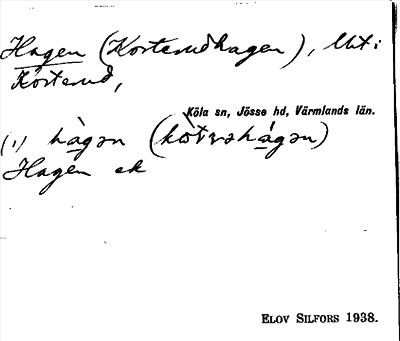 Hagen (Korterudhagen), Ut:
Korterud,
Köla sn, Jösse hd, Värmlands län.
(1) hàgən
Hagen ek
ELOV SILFORS 1938.